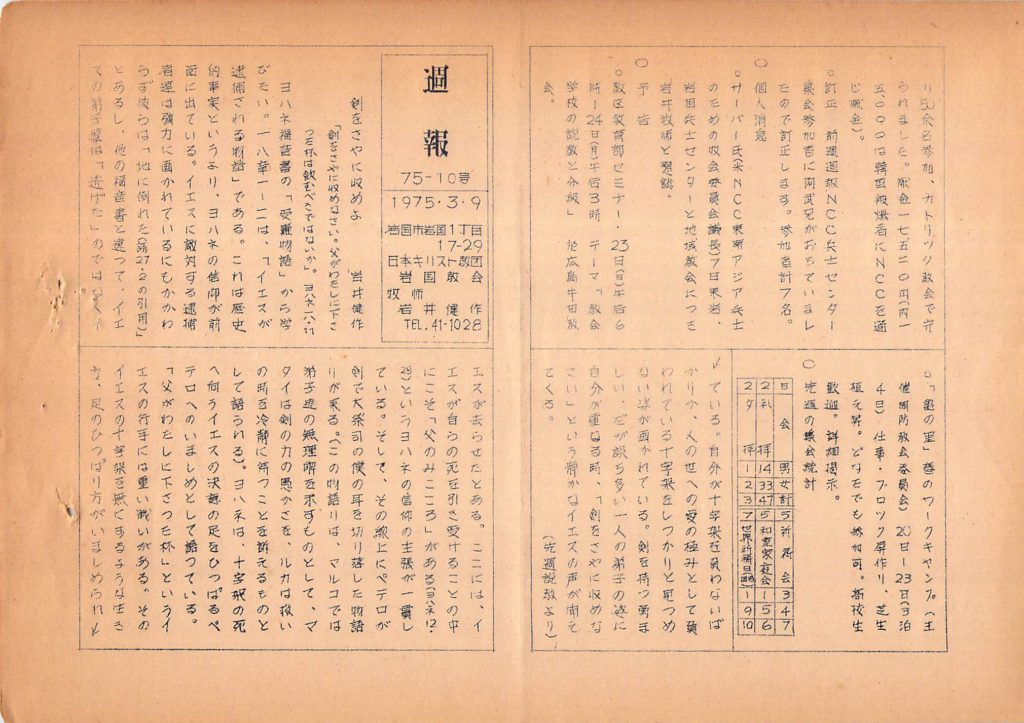 週報
75-10号
1975・3・9
岩国市岩国1丁目
17-29
日本キリスト教団
岩国教会
牧師
岩井健作
TEL.41-1028
剣をさやに収めよ 岩井健作
「剣をさやに収めなさい。父がわたしに下さ
った杯は飲むべきではないか」。ヨハネ一八・11
ヨハネ福音書の「受難物語」から学
びたい。一八章一-一一は、「イエスが
逮捕される物語」である。これは歴史
的事実というより、ヨハネの信仰が前
面に出ている。イエスに敵対する逮捕
者達は強力に画かれているにもかかわ
らず彼らは「地に倒れた(詩27・2の引用)」
とあるし、他の福音書と違って、イエ
での弟子達は「逃げた」のではなくイ
エスが去らせたとある。ここには、イ
エスが自らの死を引き受けることの中
にこそ「父のみこころ」がある(ヨハネ12・
28)というヨハネの信仰の主張が一貫し
ている。そして、その線上にペテロが
剣で大祭司の僕の耳を切り落した物語
りが来る。(この物語りは、マルコでは
弟子達の無理解を示すものとして、マ
タイは剣の力の愚かさを、ルカは救い
の時を冷静に待つことを訴えるものと
して語られる)。ヨハネは、十字架の死
へ向うイエスの決意の足をひっぱるペ
テロへのいましめとして語っている。
「父がわたしに下さった杯」というイ
エスの行手には重い戦いがある。その
イエスの十字架を無にするような生き
方、足のひっぱり方がいましめられ↓
り50余名参加、カトリック教会で守
られました。献金一七五二〇円(内一
五、〇〇〇は韓国被爆者にNCCを通
じ献金)。
○訂正 前週週報NCC兵士センター
委員会参加者に河武兄がおちていまし
たので訂正します。参加者計7名。
○ 個人消息
○サーバー氏(米NCC東南アジア兵士
のための牧会委員会議長)7日来岩、
岩国兵士センターと地域教会につき
岩井牧師と懇談。
○ 予告
○教区教育部セミナー・23日(日)午后6
時-24日(月)午后3時 テーマ「教会
学校の設教と分級」 於広島牛田教
会。
○「亀の里」春のワークキャンプ。(主
催周防教会委員会) 20日-23日(3泊
4日) 仕事・ブロック塀作り、芝生
植え等。どなたでも参加可。高校生
歓迎。詳細掲示。
○ 先週の集会統計
日 会 男 女 計
2 礼拝 14 33 47
2 夕拝 1 2 3
5 祈祷会 3 4 7
5 和室家庭会 1 5 6
7 世界祈祷日 1 9 10
↓ている。自分が十字架を負わないば
かりか、人の世への愛の極みとして負
われている十字架をしっかりと見つめ
ない姿が画かれている。剣を持つ勇ま
しい、だが誤ち多い一人の弟子の姿に
自分が重なる時、「剣をさやに収めな
さい」という静かなイエスの声が聞え
てくる。
(先週説教より)